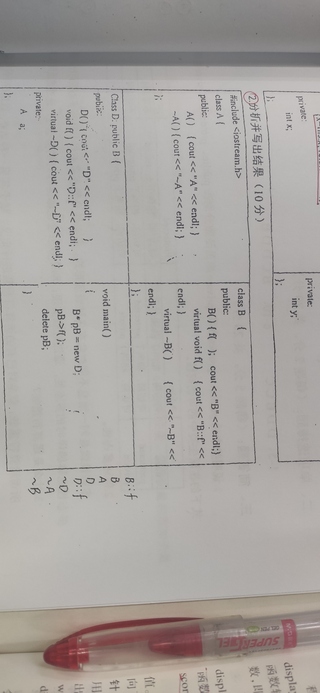 private:
int x;
};
private:
int y;
};
②分析并写出结果（10分）
#include <iostream.h>
class A {
public:
A() { cout << "A" << endl; }
~A() { cout << "~A" << endl; }
};
class B {
public:
B() { f( ); cout << "B" << endl;}
virtual void f() { cout << "B::f" <<
endl; }
virtual ~B() { cout << "~B" <<
endl; }
};
Class D: public B {
public:
D() { cout << "D" << endl; }
void f() { cout << "D::f" << endl; }
virtual ~D() { cout << "~D" << endl; }
private:
A a;
};
void main()
{
B* pB = new D;
pB->f();
delete pB;
}
B::f
B
A
D
D::f
~D
~A
~B
SUPER
GEL